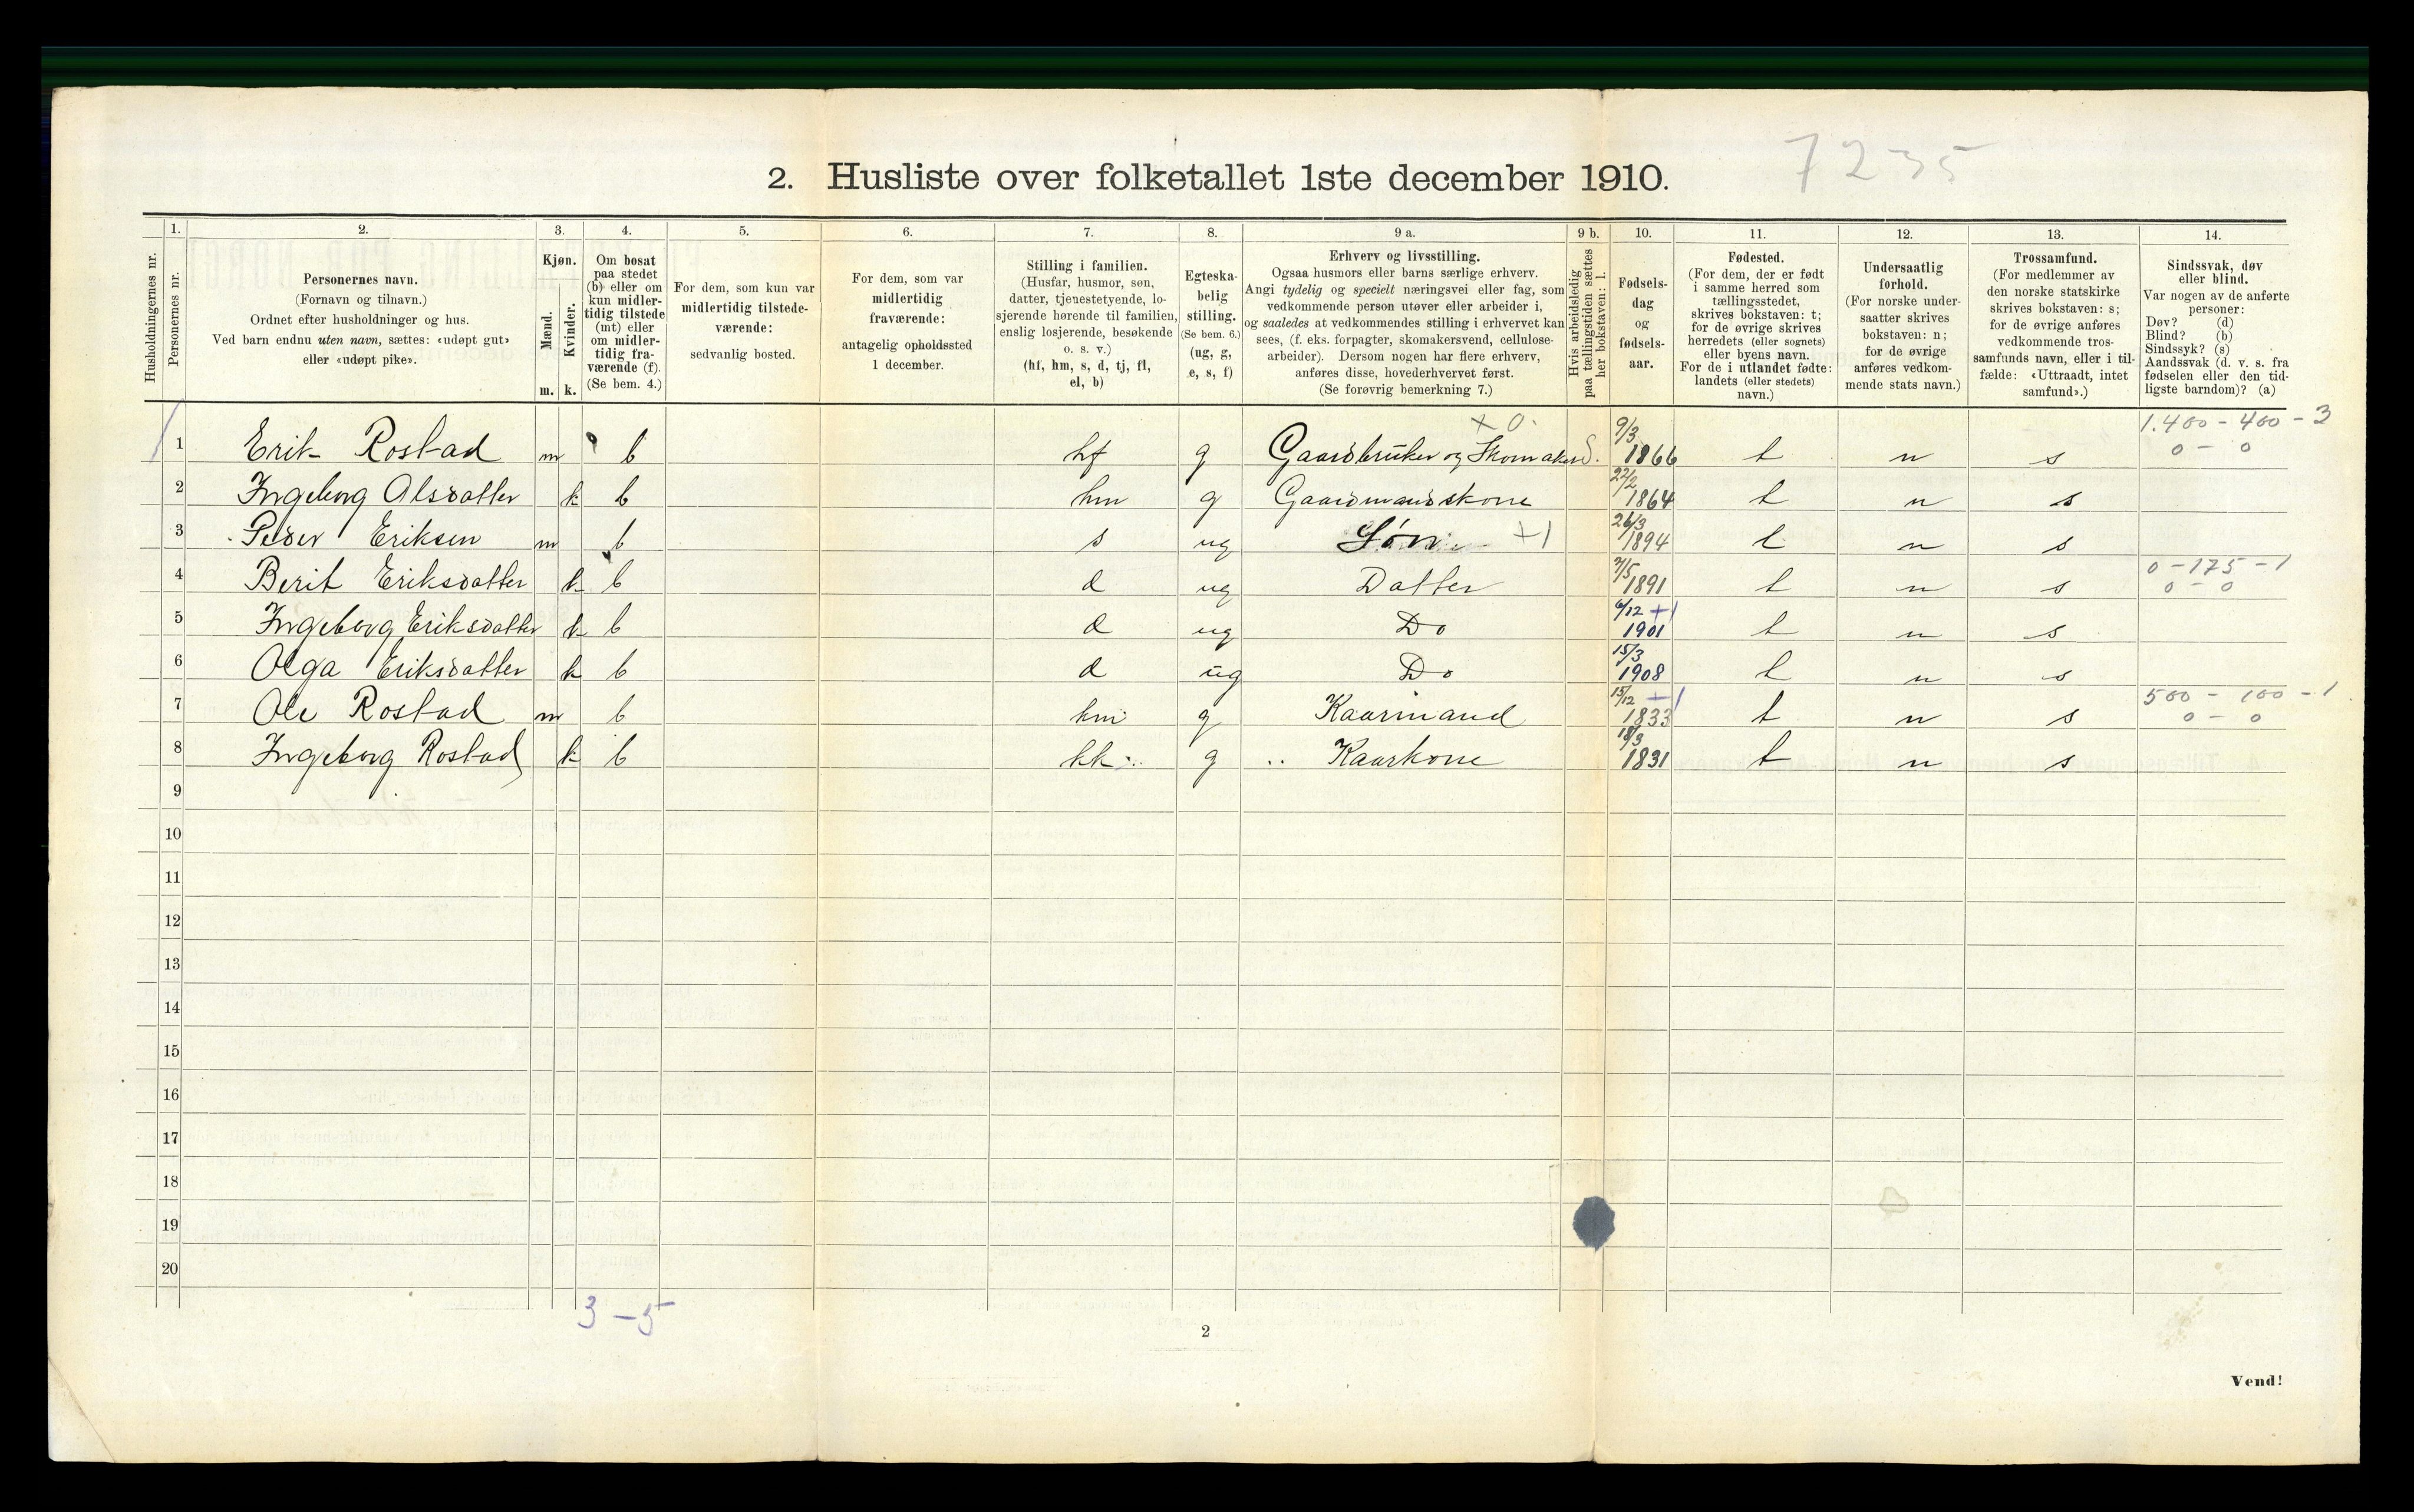 7235
2. Husliste over folketallet 1ste december 1910.
Husholdningernes nr.
1. Personernes nr.
2. Personernes navn.
(Fornavn og tilnavn.)
Ordnet efter husholdninger og hus.
Ved barn endnu uten navn, sættes: «udøpt gut»
eller «udøpt pike».
3. Kjøn.
Mænd. m.
Kvinder. k.
4. Om bosat
paa stedet
(b) eller om
kun midler-
tidig tilstede
(mt) eller
om midler-
tidig fra-
værende (f).
(Se bem. 4.)
5. For dem, som kun var
midlertidig tilstede-
værende:
sedvanlig bosted.
6. For dem, som var
midlertidig
fraværende:
antagelig opholdssted
1 december.
7. Stilling i familien.
(Husfar, husmor, søn,
datter, tjenestetyende, lo-
sjerende hørende til familien,
enslig losjerende, besøkende
o. s. v.)
(hf, hm, s, d, tj, fl,
el, b)
8. Egteska-
belig
stilling.
(Se bem. 6.)
(ug, g,
e, s, f)
9 a. Erhverv og livsstilling.
Ogsaa husmors eller barns særlige erhverv.
Angi tydelig og specielt næringsvei eller fag, som
vedkommende person utøver eller arbeider i,
og saaledes at vedkommendes stilling i erhvervet kan
sees, (f. eks. forpagter, skomakersvend, cellulose-
arbeider). Dersom nogen har flere erhverv,
anføres disse, hovederhvervet først.
(Se forøvrig bemerkning 7.)
9 b. Hvis arbeidsledig
paa tællingstiden sættes
her bokstaven: l.
10. Fødsels-
dag
og
fødsels-
aar.
11. Fødested.
(For dem, der er født
i samme herred som
tællingsstedet,
skrives bokstaven: t;
for de øvrige skrives
herredets (eller sognets)
eller byens navn.
For de i utlandet fødte:
landets (eller stedets)
navn.)
12. Undersaatlig
forhold.
(For norske under-
saatter skrives
bokstaven: n;
for de øvrige
anføres vedkom-
mende stats navn.)
13. Trossamfund.
(For medlemmer av
den norske statskirke
skrives bokstaven: s;
for de øvrige anføres
vedkommende tros-
samfunds navn, eller i til-
fælde: «Uttraadt, intet
samfund».)
14. Sindssvak, døv
eller blind.
Var nogen av de anførte
personer:
Døv? (d)
Blind? (b)
Sindssyk? (s)
Aandssvak (d. v. s. fra
fødselen eller den tid-
ligste barndom)? (a)
x 0. 1.400 - 400 - 3
1 Erik Rostad m b hf g Gaardbruker og Skomaker S. 9/3 1866 t n s 0 - 0
2 Ingeborg Olsdatter k b hm g Gaardmandskone 27/2 1864 t n s
3 Peder Eriksen m b s ug Søn +1 26/3 1894 t n s
0 - 175 - 1
4 Berit Eriksdatter k b d ug Datter 1891 t n s 0 - 0
5 Ingeborg Eriksdatter k b d ug Do 6/12 +1 1901 t n s
6 Olga Eriksdatter k b d ug Do 15/3 1908 t n s
500 - 100 - 1
7 Ole Rostad m b km g Kaarmand 15/12 +1 1833 t n s 0 - 0
8 Ingeborg Rostad k b kk g Kaarkone 18/3 1831 t n s
9
10
11
12
13
14
15
16
17
18
19
20
3 - 5
2
Vend!